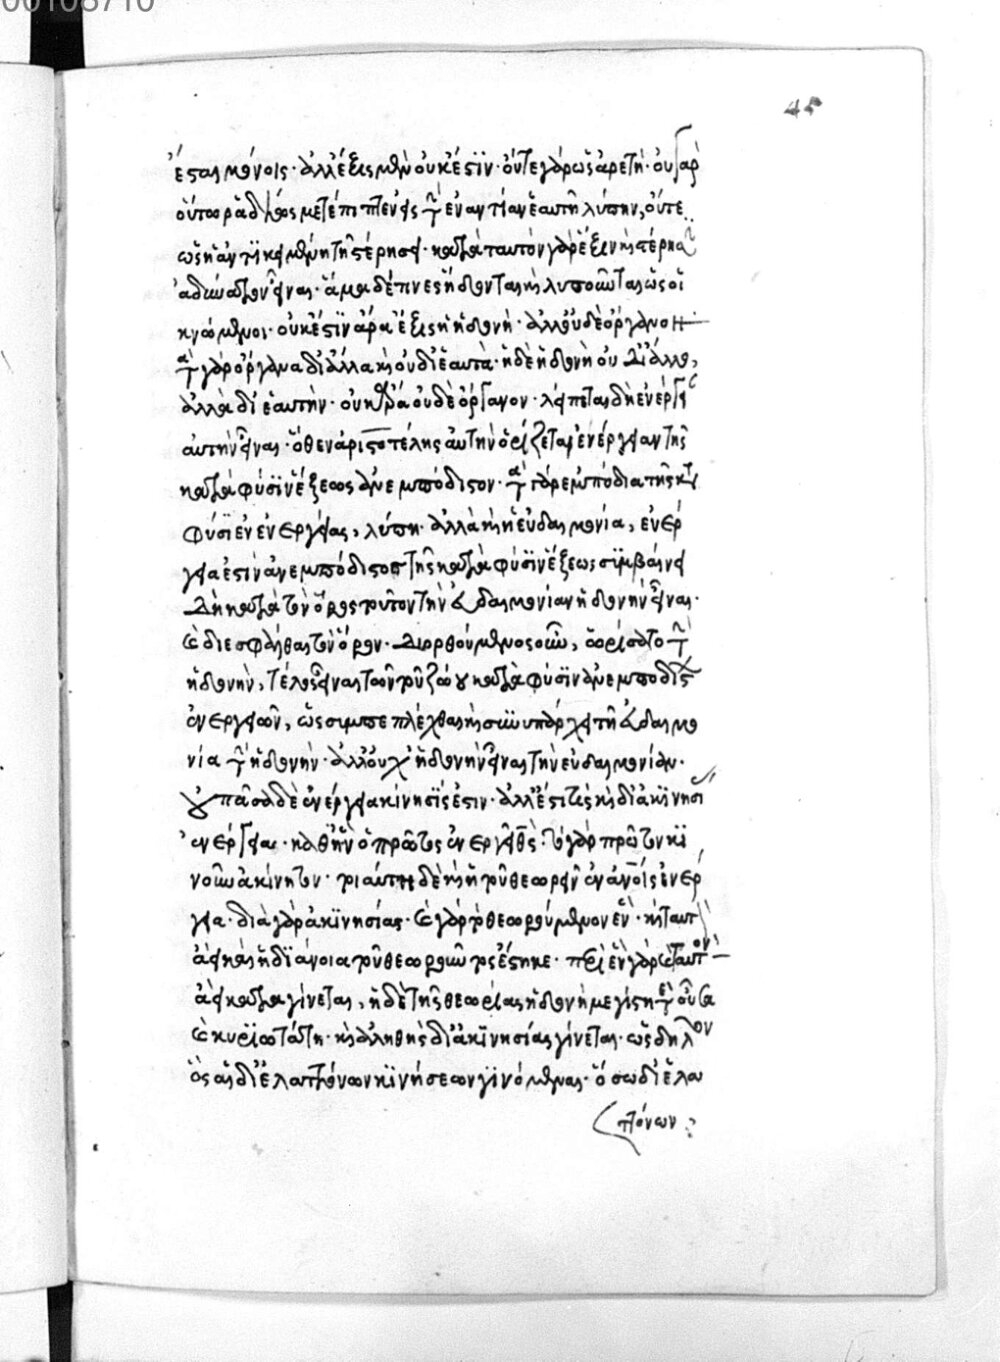 00108710
45
ἐσαλμένοις· ἀλλ' ἕξις μὲν οὐκ ἔστιν· οὔτε γὰρ ὡς ἀρετή· οὐ γὰρ
οὕτω ῥαδίως μετέπιπτεν εἰς τὴν ἐναντίαν ἑαυτῇ λύπην, οὔτε
ὡς ἡ ἀντικειμένη τῇ στερήσει· κατὰ ταυτὸν γὰρ ἕξιν καὶ στέρησιν
ἀδύνατον εἶναι· ἅμα δέ τινες ἥδονται καὶ λυποῦνται ὡς οἱ
κνώμενοι· οὐκ ἔστιν ἄρα ἕξις ἡ ἡδονή· ἀλλ' οὐδὲ ὄργανον
τὰ γὰρ ὄργανα δι' ἄλλα καὶ οὐ δι' ἑαυτά· ἡ δὲ ἡδονὴ οὐ δι' ἄλλο,
ἀλλὰ δι' ἑαυτήν· οὐκ ἄρα οὐδὲ ὄργανον· λείπεται δὴ ἐνέργειαν
αὐτὴν εἶναι· ὅθεν ἀριστοτέλης αὐτὴν ὁρίζεται ἐνέργειαν τῆς
κατὰ φύσιν ἕξεως ἀνεμπόδιστον· τὰ γὰρ ἐμπόδια τῆς κατὰ
φύσιν ἐνεργείας, λύπη· ἀλλὰ καὶ ἡ εὐδαιμονία, ἐνέρ
γειά ἐστιν ἀνεμπόδιστος τῆς κατὰ φύσιν ἕξεως συμβαίνει
δὴ κατὰ τὸν ὅρον τοῦτον τὴν εὐδαιμονίαν ἡδονὴν εἶναι·
καὶ διεσφάλθαι τὸν ὅρον· διορθούμενος οὖν, ὡρίσατο τὴν
ἡδονὴν, τέλος εἶναι τῶν τοῦ ζώου κατὰ φύσιν ἀνεμποδίστων
ἐνεργειῶν, ὡς συμπεπλέχθαι καὶ συνυπάρχειν τῇ εὐδαιμο
νίᾳ τὴν ἡδονήν· ἀλλ' οὐχ' ἡδονὴν εἶναι τὴν εὐδαιμονίαν·
οὐ πᾶσα δὲ ἐνέργεια κίνησίς ἐστιν· ἀλλ' ἔστι τις καὶ δι' ἀκινησίας
ἐνέργεια· καθ' ἣν ὁ πρῶτος ἐνεργεῖ θεός· τὸ γὰρ πρῶτον κι
νοῦν ἀκίνητον· τοιαύτη δὲ καὶ ἡ τοῦ θεωρεῖν ἐν ἀνοις ἐνέρ
γεια· δι' ἀκινησίας· καὶ γὰρ τὸ θεωρούμενον ἓν· καὶ ταυτὸν
ἀεὶ καὶ ἡ διάνοια τοῦ θεωροῦντος ἕστηκε· περὶ ἓν γὰρ καὶ ταυτὸν
ἀεὶ καταγίνεται, ἡ δὲ τῆς θεωρίας ἡδονὴ μεγίστη τε οὖσα
καὶ κυριωτάτη· καὶ ἀληθὴς δι' ἀκινησίας γίνεται· ὡς δηλον
ὅτι αἱ δι' ἐλαττόνων κινήσεων γινόμεναι· ὅσῳ δι' ἐλατ
τόνων